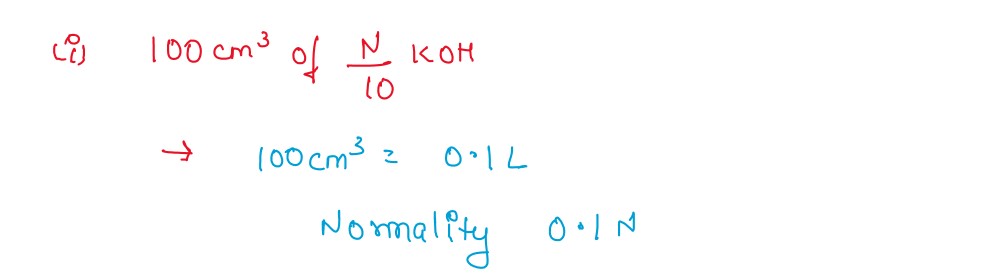 (i) 100 cm³ of N/10 KOH
→ 100cm³ = 0.1 L
Normality 0.1 N